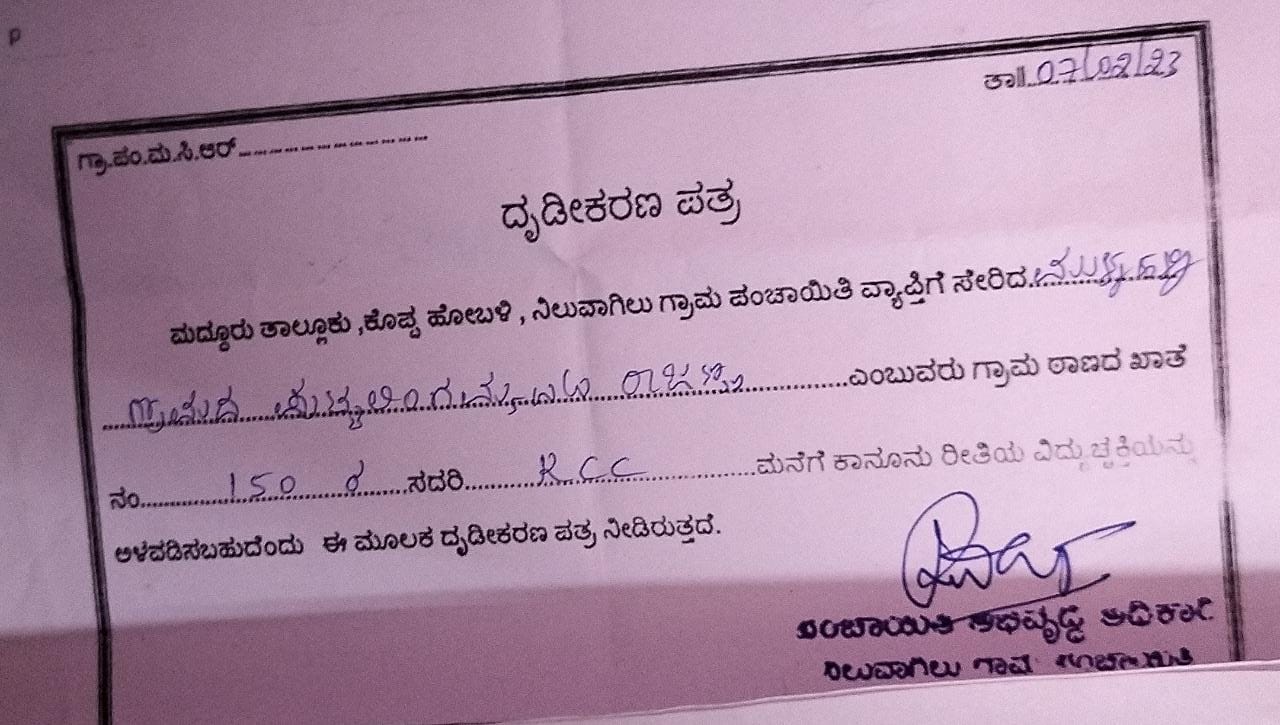 ತಾ||..07/02/23
ಗ್ರಾ.ಪಂ.ಮ.ಸಿ.ಆರ್
ದೃಡೀಕರಣ ಪತ್ರ
ಮದ್ದೂರು ತಾಲ್ಲೂಕು ,ಕೊಪ್ಪ ಹೋಬಳಿ , ನಿಲುವಾಗಿಲು ಗ್ರಾಮ ಪಂಚಾಯಿತಿ ವ್ಯಾಪ್ತಿಗೆ ಸೇರಿದ
ಗ್ರಾಮದ ಎಂಬುವರು ಗ್ರಾಮ ಠಾಣದ ಖಾತೆ
ನಂ 150 ಸದರಿ RCC ಮನೆಗೆ ಕಾನೂನು ರೀತಿಯ ವಿದ್ಯುಚ್ಛಕ್ತಿಯನ್ನು
ಅಳವಡಿಸಬಹುದೆಂದು ಈ ಮೂಲಕ ದೃಡೀಕರಣ ಪತ್ರ ನೀಡಿರುತ್ತದೆ.
ಪಂಚಾಯಿತಿ ಅಭಿವೃದ್ಧಿ ಅಧಿಕಾರಿ
ನಿಲುವಾಗಿಲು ಗ್ರಾಮ ಪಂಚಾಯಿತಿ